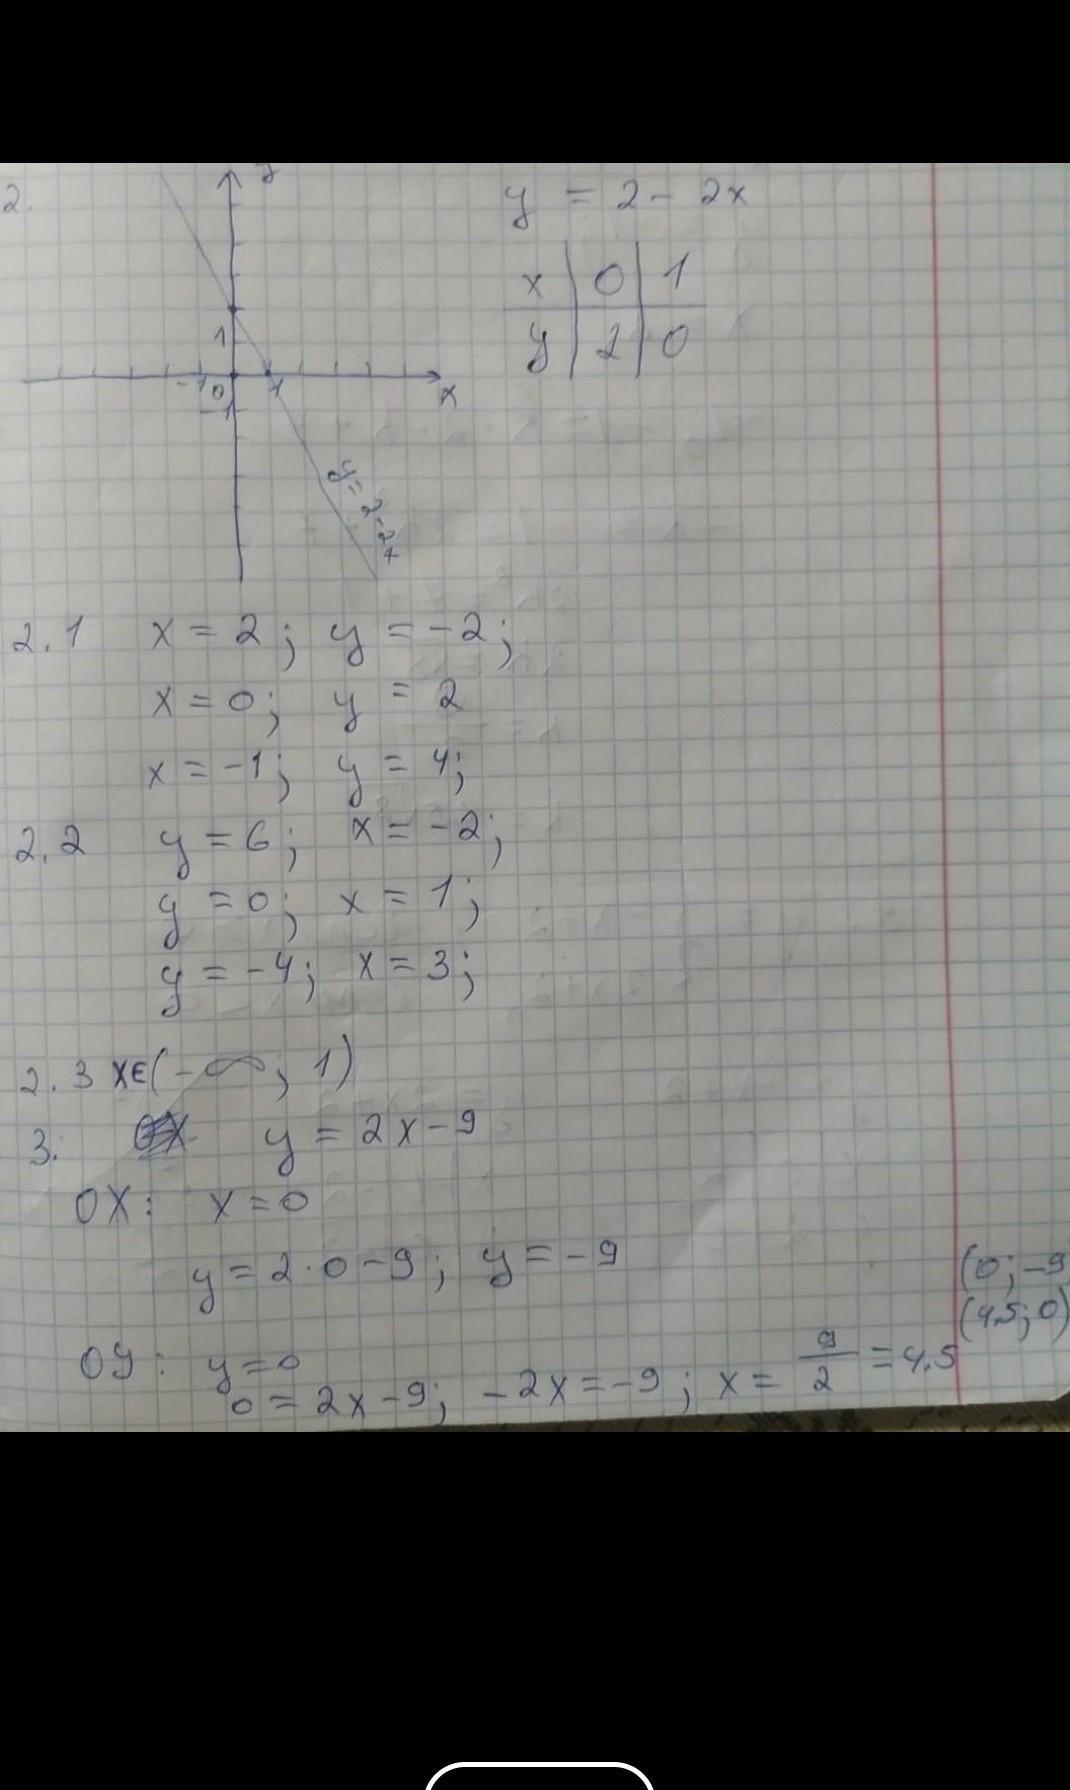 2.
y
y = 2 - 2x
x 0 1
y 2 0
1
-1 0 1
x
-1
y = 2-2x
2.1 x = 2; y = -2;
x = 0; y = 2
x = -1; y = 4;
2.2 y = 6; x = -2;
y = 0; x = 1;
y = -4; x = 3;
2.3 x∈(-∞; 1)
3. y = 2x - 9
OX: x = 0
y = 2·0 - 9; y = -9
(0; -9
(4.5; 0)
OY: y = 0
0 = 2x - 9; -2x = -9; x = 9/2 = 4.5